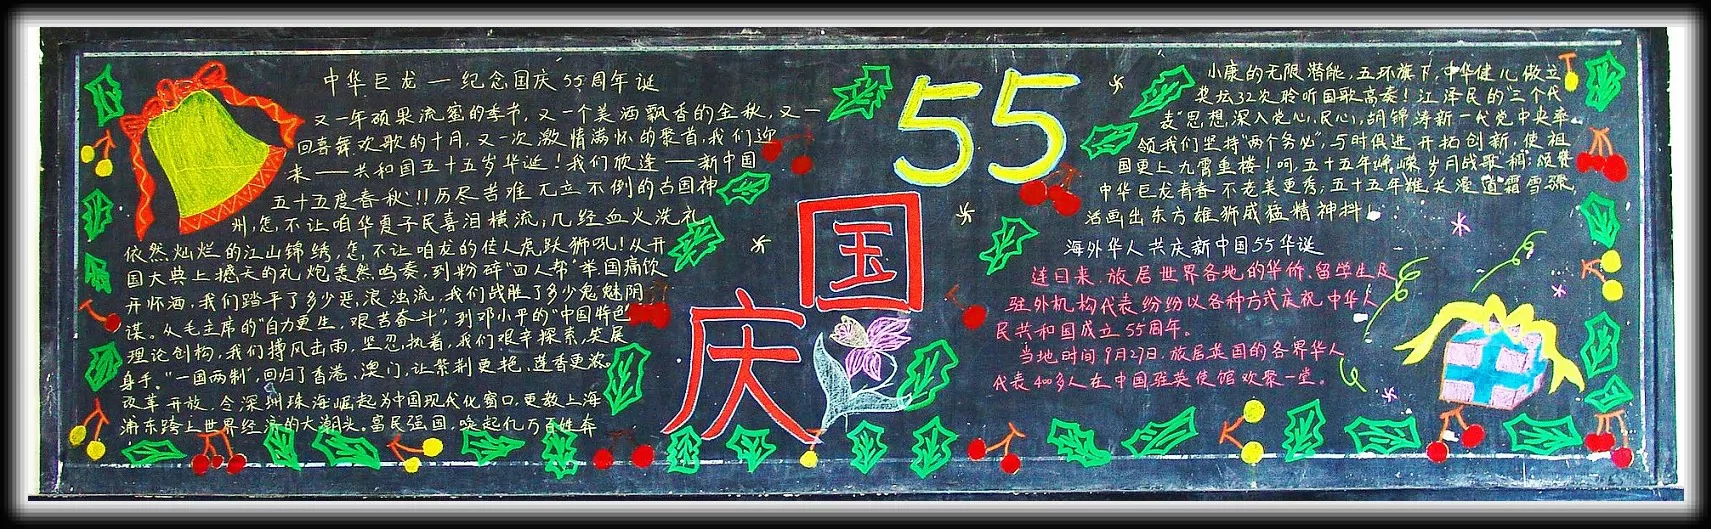 中华巨龙一纪念国庆55周年诞
又一年硕果流蜜的季节,又一个美酒飘香的金秋,又一
回喜舞欢歌的十月,又一次激情满怀的聚首,我们迎
来——共和国五十五岁华诞!我们欣逢——新中国
五十五度春秋!!历尽苦难 兀立不倒的古国神
州,怎不让咱华夏子民喜泪横流,几经血火洗礼
依然灿烂的江山锦绣,怎不让咱龙的传人虎跃狮吼!从开
国大典上撼天的礼炮轰然鸣奏,到粉碎"四人帮"举国痛饮
开怀酒,我们踏平了多少恶浪浊流,我们战胜了多少鬼魅阴
谋。从毛主席的"自力更生,艰苦奋斗",到邓小平的"中国特色"
理论创构,我们搏风击雨,坚忍执着,我们艰辛探索,奕展
身手。"一国两制",回归了香港、澳门,让紫荆更艳,莲香更浓。
改革开放,令深圳珠海崛起为中国现代化窗口,更教上海
浦东跨上世界经济的大潮头。富民强国,唤起亿万百姓奔
55
国
庆
小康的无限潜能,五环旗下,中华健儿傲立
奖坛32次聆听国歌高奏!江泽民的"三个代
表"思想,深入党心、民心,胡锦涛新一代党中央率
领我们坚持"两个务必",与时俱进开拓创新,使祖
国更上九霄重楼!呵,五十五年峥嵘岁月战歌稠;颂赞
中华巨龙青春不老美更秀;五十五年雄关漫道霜雪骤,
活画出东方雄狮威猛精神抖。
海外华人共庆新中国55华诞
连日来,旅居世界各地的华侨、留学生及
驻外机构代表纷纷以各种方式庆祝中华人
民共和国成立55周年。
当地时间9月27日,旅居英国的各界华人
代表400多人在中国驻英使馆欢聚一堂。